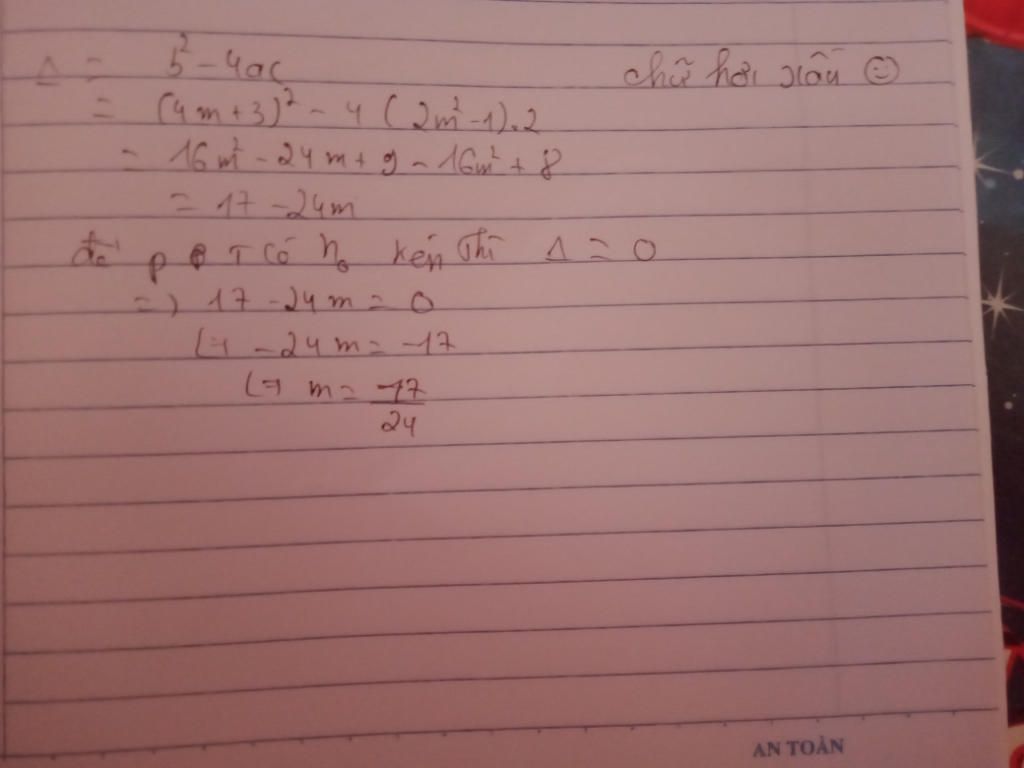 Δ = b² - 4ac chữ hơi xấu ☺
= (4m + 3)² - 4 (2m² - 1).2
= 16m² - 24m + 9 - 16m² + 8
= 17 - 24m
để p T có n₀ kép thì Δ = 0
=) 17 - 24m = 0
(=) - 24m = -17
(=) m = -17/24
AN TOÀN